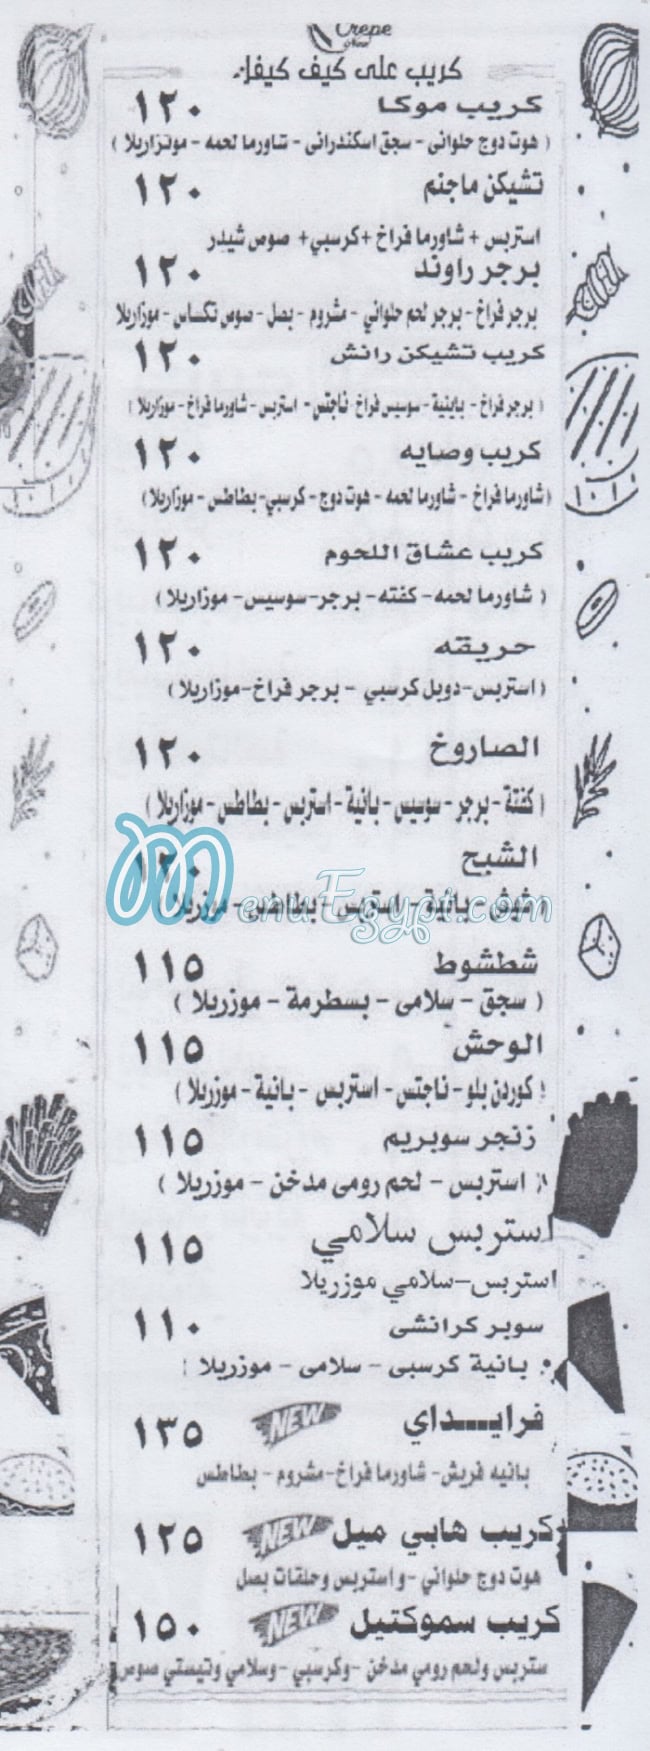 Crepe
كريب على كيف كيفك
كريب موكا ١٢٠
( هوت دوج حلوانى - سجق اسكندرانى - شاورما لحمه - موتزاريلا )
تشيكن ماجنم ١٢٠
استربس + شاورما فراخ +كرسبي+ صوص شيدر
برجر راوند ١٢٠
برجر فراخ - برجر لحم حلواني - مشروم - بصل - صوص تكساس - موزاريلا
كريب تشيكن رانش ١٢٠
( برجر فراخ - بانيه - سوسيس فراخ - ناجتس - استربس - شاورما فراخ - موزاريلا )
كريب وصايه ١٢٠
(شاورما فراخ - شاورما لحمه - هوت دوج - كرسبي- بطاطس - موزاريلا)
كريب عشاق اللحوم ١٢٠
( شاورما لحمه - كفته - برجر-سوسيس - موزاريلا )
حريقه ١٢٠
( استربس-دوبل كرسبي - برجر فراخ-موزاريلا )
الصاروخ ١٢٠
( كفتة - برجر - سوسيس - بانية - استربس - بطاطس - موزاريلا )
الشبح ١٢٠
بانية - استربس - بطاطس - موزريلا )
MenuEgypt.com
شطشوط ١١٥
( سجق - سلامى - بسطرمة - موزريلا )
الوحش ١١٥
( كوردن بلو - ناجتس - استربس - بانية - موزريلا )
زنجر سوبريم ١١٥
( استربس - لحم رومى مدخن - موزريلا )
استربس سلامي ١١٥
استربس-سلامي موزريلا
سوبر كرانشى ١١٠
بانية كرسبى - سلامى - موزريلا )
فرايـــداي NEW ١٣٥
بانيه فريش - شاورما فراخ-مشروم - بطاطس
كريب هابي ميل NEW ١٢٥
هوت دوج حلواني -واستربس وحلقات بصل
كريب سموكتيل NEW ١٥٠
ستربس ولحم رومي مدخن -وكرسبي -وسلامي وتيستي صوص